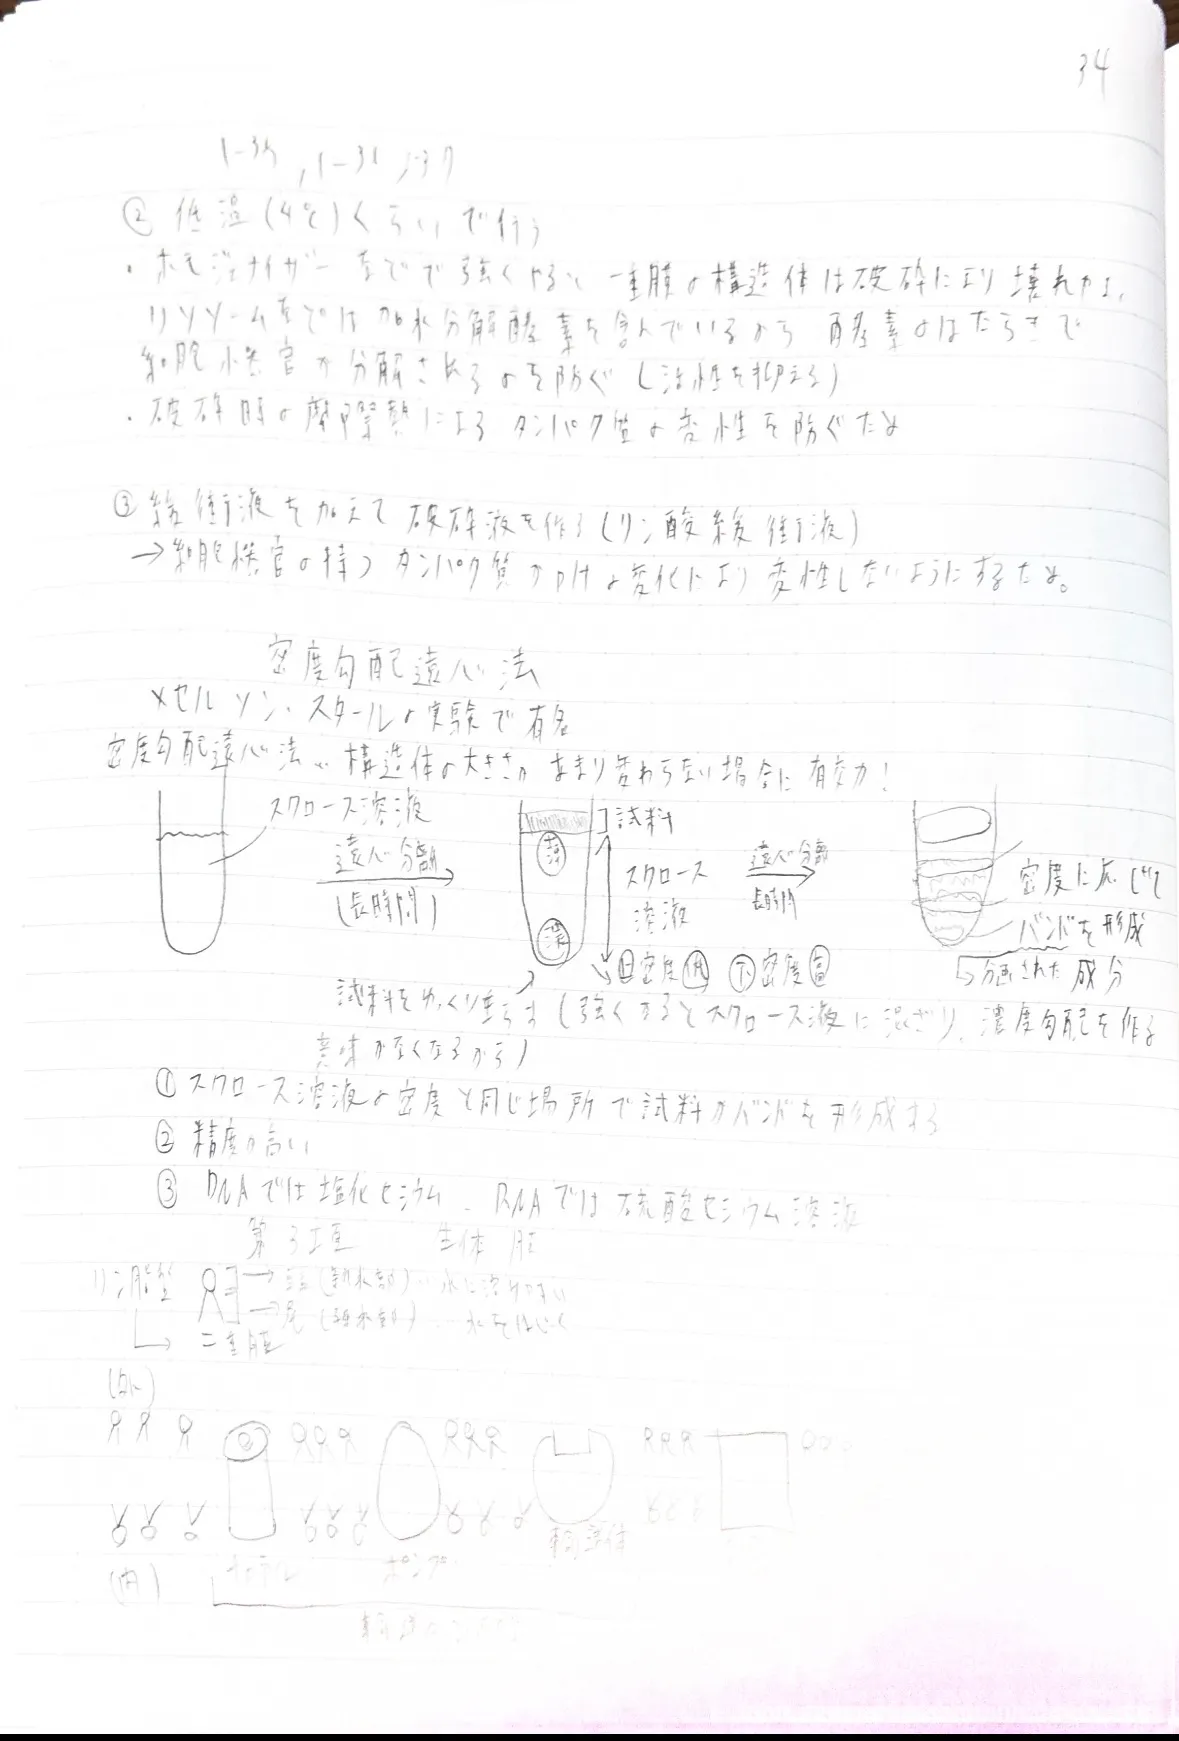 34
1-35, 1-36, 1-37
② 低温(4℃)くらいで行う
・ホモジナイザーなどで強くやると一重膜の構造体は破砕により壊れかよ,
リソソームなどは加水分解酵素を含んでいるから 酵素のはたらきで
細胞小器官が分解されるのを防ぐ(活性を抑える)
・破砕時の摩擦熱によるタンパク質の変性を防ぐため
③ 緩衝液を加えて破砕液を作る(リン酸緩衝液)
→細胞小器官の持つタンパク質がpHの変化により変性しないようにするため。
密度勾配遠心法
メセルソン・スタールの実験で有名
密度勾配遠心法… 構造体の大きさがあまり変わらない場合に有効!
スクロース溶液
遠心分離
(長時間)
試料
薄
スクロース
溶液
濃
遠心分離
長時間
密度に応じて
バンドを形成
上密度低 下密度高
分画された成分
試料をゆっくり重ねる(強くするとスクロース液に混ざり、濃度勾配を作る
意味がなくなるから)
① スクロース溶液の密度と同じ場所で試料がバンドを形成する
② 精度が高い
③ DNAでは塩化セシウム、RNAでは硫酸セシウム溶液
第3項 生体膜
リン脂質
頭(親水部)… 水に溶けやすい
尾(疎水部)… 水をはじく
二重膜
(外)
(内)
チャネル
ポンプ
輸送体